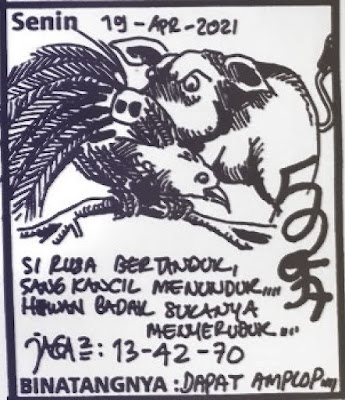 Senin 19-APR-2021
SI RUSA BERTANDUK,
SANG KANCIL MENUNDUK....
HEWAN BADAK SUKANYA
MENYERUDUK....
JAGA2: 13-42-70
BINATANGNYA : DAPAT AMPLOP